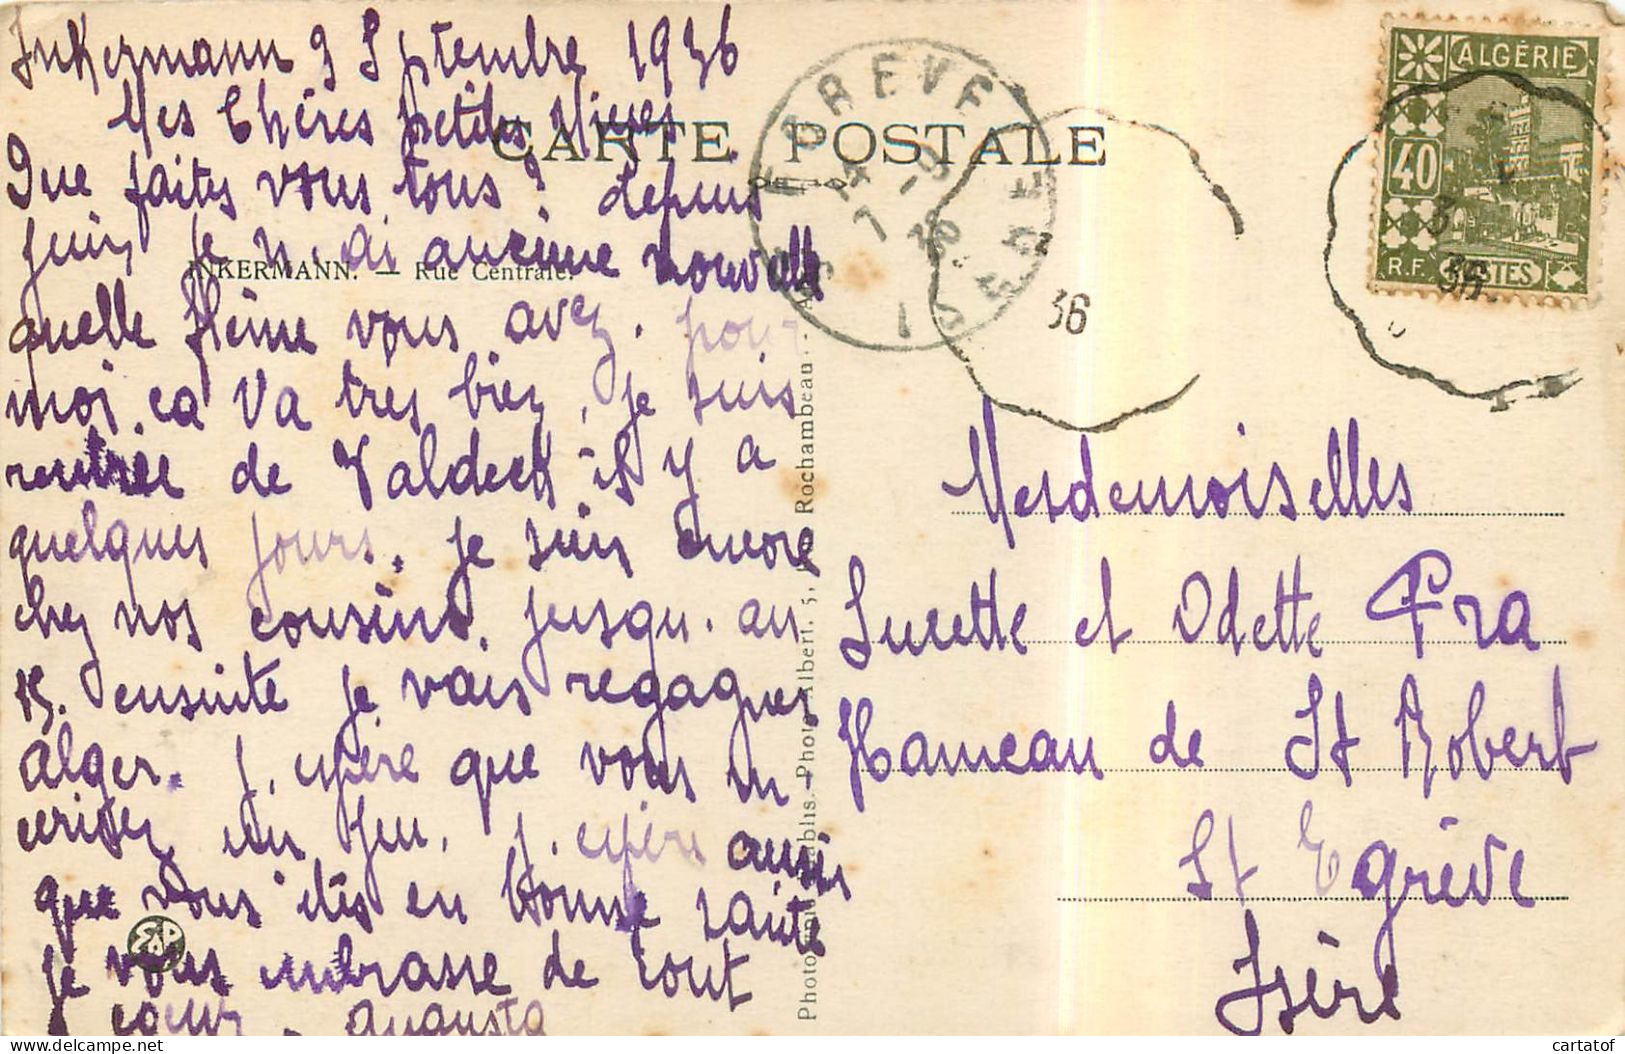 Inkermann 3 Septembre 1936
Mes Chères petites Nieces
CARTE POSTALE
Que faites vous tous? depuis
juin je n'ai aucune nouvelle
INKERMANN. — Rue Centrale.
quelle flème vous avez. pour
moi ca va tres bien, je suis
rentrée de Valdeck il y a
quelques jours. je suis encore
chez nos cousins. jusqu'au
15. ensuite je vais regagner
Alger. j'espère que vous m
ecrirez un peu. j'espère aussi
que vous êtes en bonne santé
je vous embrasse de tout
coeur. Augusta
Photo Albert, 5, Rue Rochambeau. - Alger
ST EGREVE
ISERE
7 - 9
36
36
ALGÉRIE
40
R.F. POSTES
3
36
Mesdemoiselles
Lucette et Odette Pra
Hameau de St Robert
St Egrève
Isère
cartatof